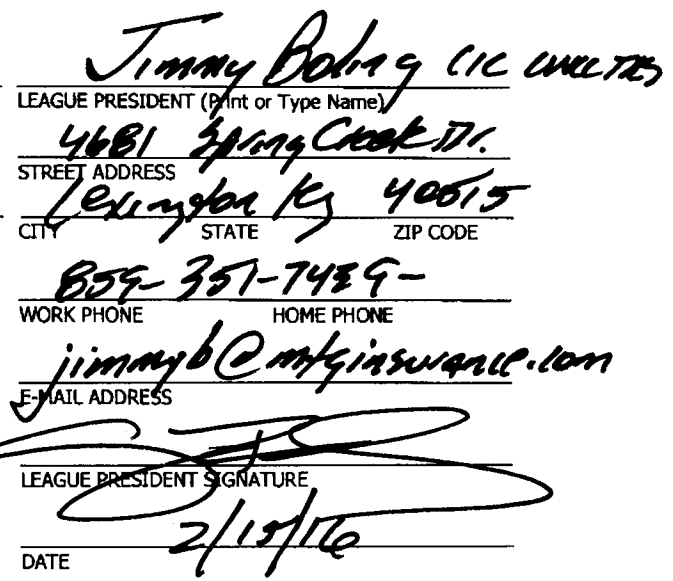 Jimmy Boling CIC
LEAGUE PRESIDENT (Print or Type Name)
4681 Spring Creek Dr.
STREET ADDRESS
Lexington Ky 40515
CITY STATE ZIP CODE
859-351-7489-
WORK PHONE HOME PHONE
jimmyb@mtginsurance.com
E-MAIL ADDRESS
LEAGUE PRESIDENT SIGNATURE
2/15/16
DATE